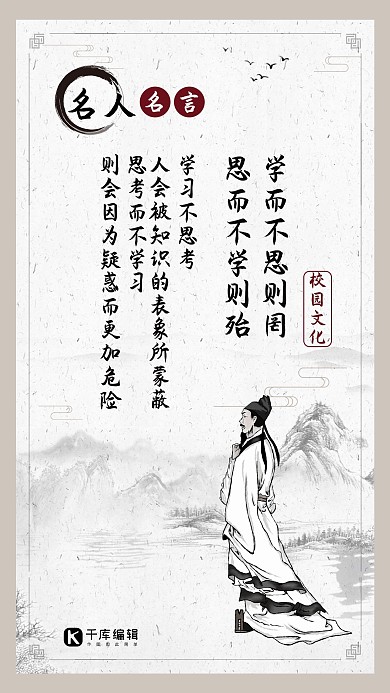 名人名言
学而不思则罔
思而不学则殆
校园文化
学习不思考
人会被知识的表象所蒙蔽
思考而不学习
则会因为疑惑而更加危险
千库编辑